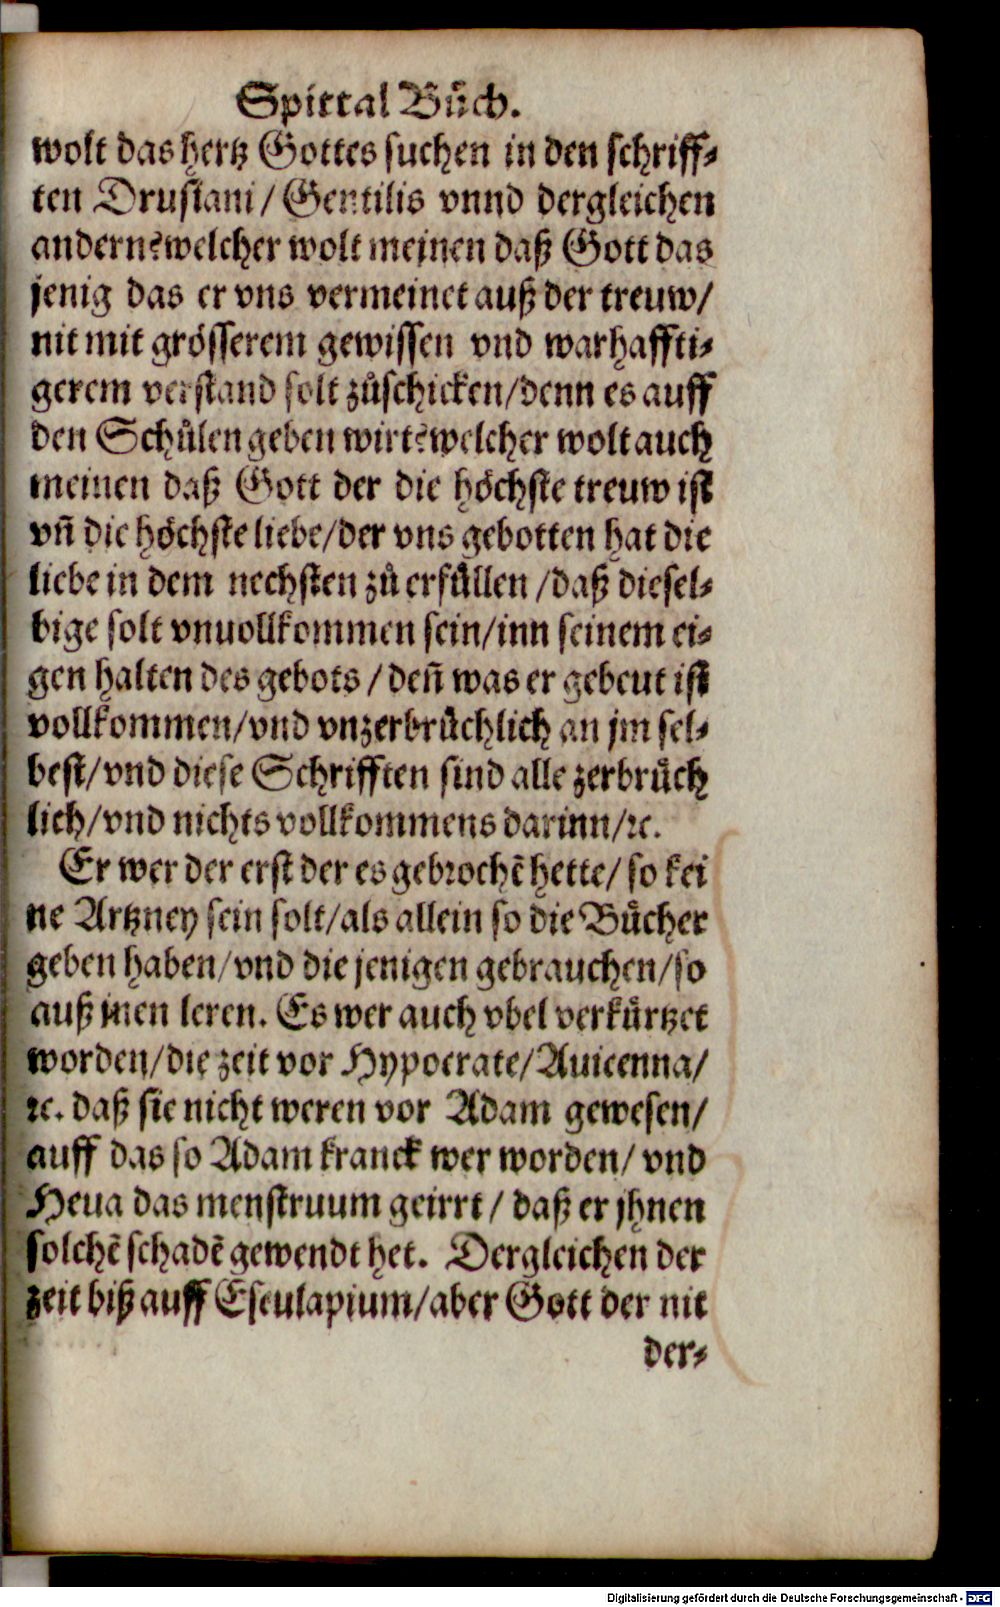 Spittal Bůch.
wolt das hertz Gottes suchen in den schriff⸗
ten Drusiani / Gentilis vnnd dergleichen
andern? welcher wolt meinen daß Gott das
jenig das er vns vermeinet auß der treuw/
nit mit grösserem gewissen vnd warhaffti⸗
gerem verstand solt zůschicken/denn es auff
den Schůlen geben wirt? welcher wolt auch
meinen daß Gott der die höchste treuw ist
vñ die höchste liebe/der vns gebotten hat die
liebe in dem nechsten zů erfüllen /daß diesel⸗
bige solt vnuollkommen sein/inn seinem ei⸗
gen halten des gebots / deñ was er gebeut ist
vollkommen/vnd vnzerbrüchlich an jm sel⸗
best/vnd diese Schrifften sind alle zerbrüch
lich/vnd nichts vollkommens darinn/ꝛc.
Er wer der erst der es gebrochẽ hette/ so kei
ne Artzney sein solt/als allein so die Bücher
geben haben/vnd die jenigen gebrauchen/so
auß jnen leren. Es wer auch vbel verkürtzet
worden/die zeit vor Hypocrate/Auicenna/
ꝛc. daß sie nicht weren vor Adam gewesen/
auff das so Adam kranck wer worden/ vnd
Heua das menstruum geirrt / daß er jhnen
solchẽ schadẽ gewendt het. Dergleichen der
zeit biß auff Esculapium/aber Gott der nit
der⸗
Digitalisierung gefördert durch die Deutsche Forschungsgemeinschaft - DFG